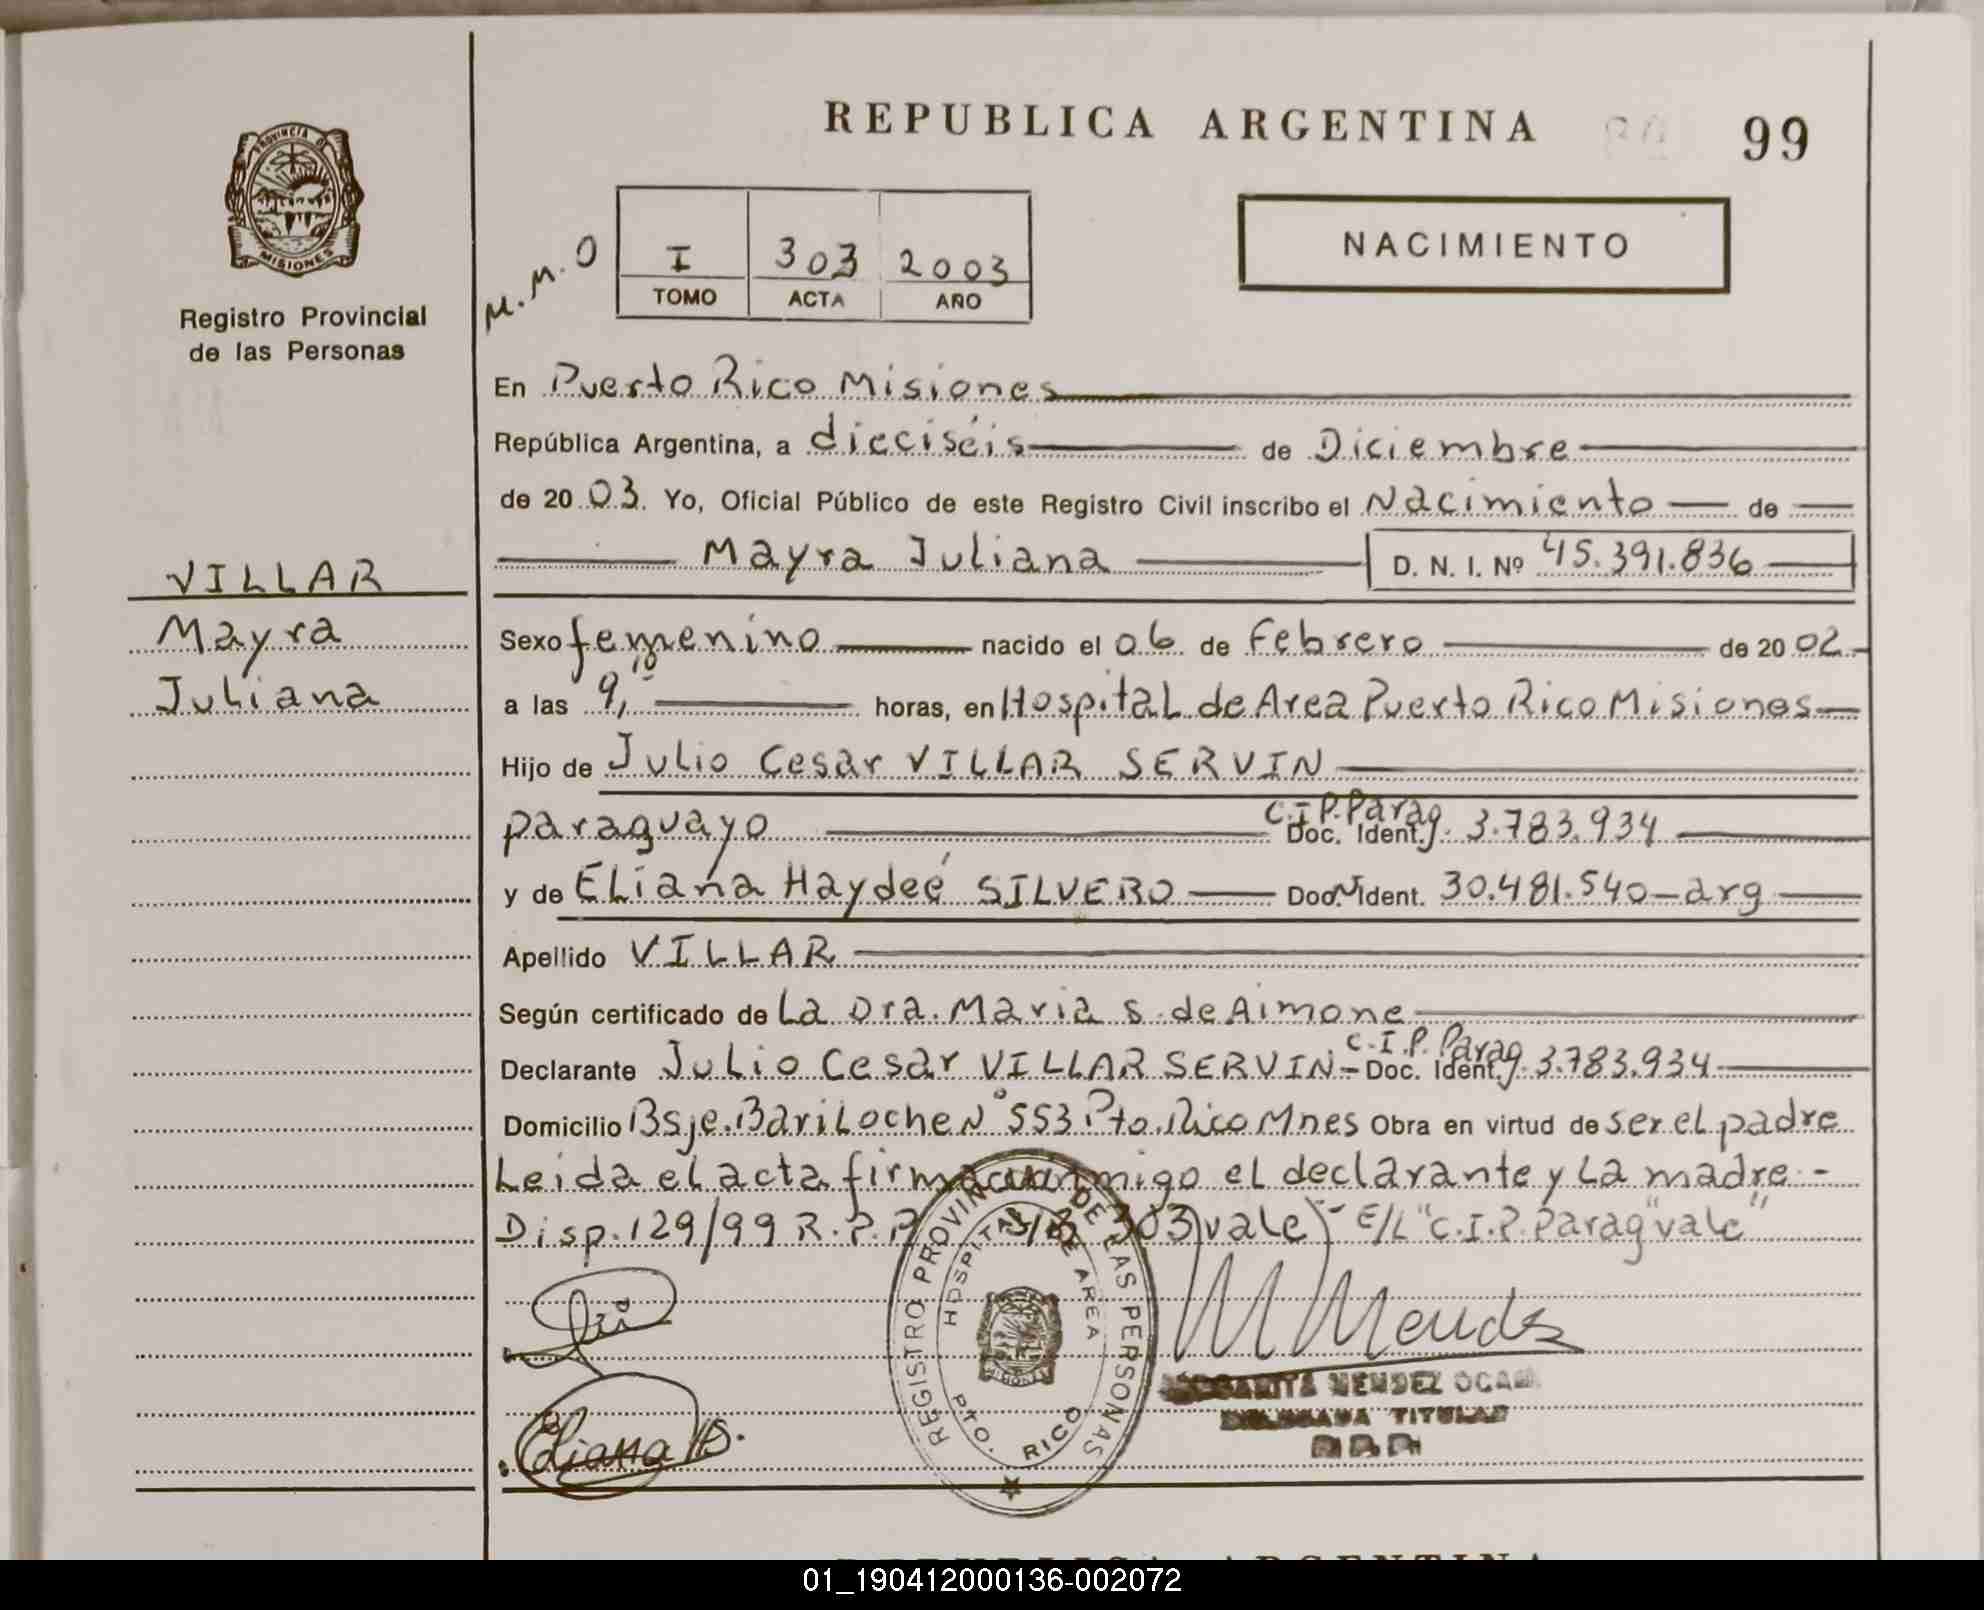 REPUBLICA ARGENTINA 99
PROVINCIA DE
MISIONES
Registro Provincial
de las Personas
M.M.O
I 303 2003
TOMO ACTA AÑO
NACIMIENTO
En Puerto Rico Misiones
República Argentina, a dieciséis de Diciembre
de 20 03. Yo, Oficial Público de este Registro Civil inscribo el Nacimiento de
Mayra Juliana D. N. I. Nº 45.391.836
VILLAR
Mayra
Juliana
Sexo femenino nacido el 06 de Febrero de 20 02
a las 9,10 horas, en Hospital de Area Puerto Rico Misiones
Hijo de Julio Cesar VILLAR SERVIN
paraguayo C.I.P. Parag. Doc. Ident. 3.783.934
y de Eliana Haydeé SILVERO Doc. Ident. 30.481.540-arg
Apellido VILLAR
Según certificado de La Dra. Maria S. de Aimone
Declarante Julio Cesar VILLAR SERVIN - C.I.P. Parag. Doc. Ident. 3.783.934
Domicilio Bsje. Bariloche Nº 553 Pto. Rico Mnes Obra en virtud de ser el padre
Leida el acta firma conmigo el declarante y La madre.-
Disp. 129/99 R.P.P. S/B 303 vale)- E/L "C.I.P. Parag" vale"
REGISTRO PROVINCIAL DE LAS PERSONAS
HOSPITAL DE AREA
PTO. RICO
M Mendez
Eliana S.
MENDEZ OCAM
TITULAR
REPUBLICA ARGENTINA
01_190412000136-002072